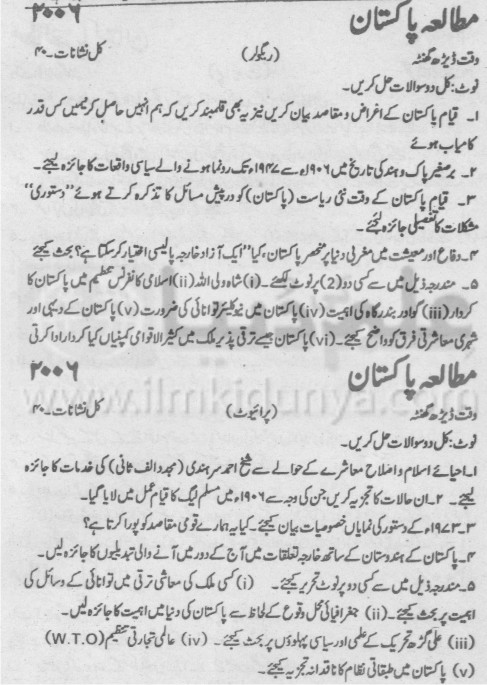 مطالعہ پاکستان ۲۰۰۶
وقت ڈیڑھ گھنٹہ (ریگولر) کل نشانات۔ ۴۰
نوٹ: کل دو سوالات حل کریں۔
۱۔ قیام پاکستان کے اغراض و مقاصد بیان کریں نیز یہ بھی قلمبند کریں کہ ہم انہیں حاصل کرنیمیں کس قدر
کامیاب ہوئے
۲۔ برصغیر پاک و ہند کی تاریخ میں ۱۹۰۶ء سے ۱۹۴۷ء تک رونما ہونے والے سیاسی واقعات کا جائزہ لیجئے۔
۳۔ قیام پاکستان کے وقت نئی ریاست (پاکستان) کو درپیش مسائل کا تذکرہ کرتے ہوئے "دستوری"
مشکلات کا تفصیلی جائزہ لیجئے۔
۴۔ دفاع اور معیشت میں مغربی دنیا پر منحصر پاکستان، کیا "ایک آزاد خارجہ پالیسی اختیار کر سکتا ہے؟ بحث کیجئے
۵۔ مندرجہ ذیل میں سے کسی دو (2) پر نوٹ لکھئے۔ (i) شاہ ولی اللہ (ii) اسلامی کانفرنس تنظیم میں پاکستان کا
کردار (iii) گوادر بندرگاہ کی اہمیت (iv) پاکستان میں نیوکلیئر توانائی کی ضرورت (v) پاکستان کے دیہی اور
شہری معاشرتی فرق کو واضح کیجئے۔ (vi) پاکستان جیسے ترقی پذیر ملک میں کثیر الاقوامی کمپنیاں کیا کردار ادا کرتی
مطالعہ پاکستان ۲۰۰۶
www.ilmkidunya.com
وقت ڈیڑھ گھنٹہ (پرائیوٹ) کل نشانات۔ ۴۰
نوٹ: کل دو سوالات حل کریں۔
۱۔ احیائے اسلام و اصلاح معاشرے کے حوالے سے شیخ احمد سرہندی (مجدد الف ثانی) کی خدمات کا جائزہ
لیجئے۔ ۲۔ ان حالات کا تجزیہ کریں جن کی وجہ سے ۱۹۰۶ء میں مسلم لیگ کا قیام عمل میں لایا گیا۔
۳۔ ۱۹۷۳ء کے دستور کی نمایاں خصوصیات بیان کیجئے۔ کیا یہ ہمارے قومی مقاصد کو پورا کرتا ہے؟
۴۔ پاکستان کے ہندوستان کے ساتھ خارجہ تعلقات میں آج کے دور میں آنے والی تبدیلیوں کا جائزہ لیں۔
۵۔ مندرجہ ذیل میں سے کسی دو پر نوٹ تحریر کیجئے۔ (i) کسی ملک کی معاشی ترقی میں توانائی کے وسائل کی
اہمیت پر بحث کیجئے۔ (ii) جغرافیائی محل وقوع کے لحاظ سے پاکستان کی دنیا میں اہمیت کا جائزہ لیں۔
(iii) علی گڑھ تحریک کے علمی اور سیاسی پہلوؤں پر بحث کیجئے۔ (iv) عالمی تجارتی تنظیم (W.T.O)
(v) پاکستان میں طبقاتی نظام کا ناقدانہ تجزیہ کیجئے۔